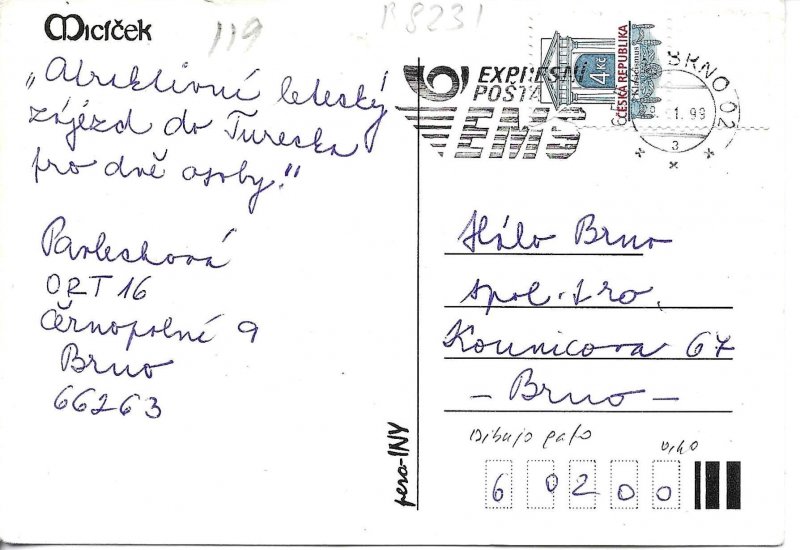 Micíček
119
R 8231
„Atraktivní letecký
zájezd do Turecka
pro dvě osoby."
Pavlesková
ORT 16
Černopolní 9
Brno
66263
EXPRESNÍ
POŠTA
EMS
4 Kč
ČESKÁ REPUBLIKA
Klasicismus
BRNO 02
1.99
3
Hálo Brno
spol. s r o.
Kounicova 67
- Brno -
Dibujo gato
60200
pero-INY